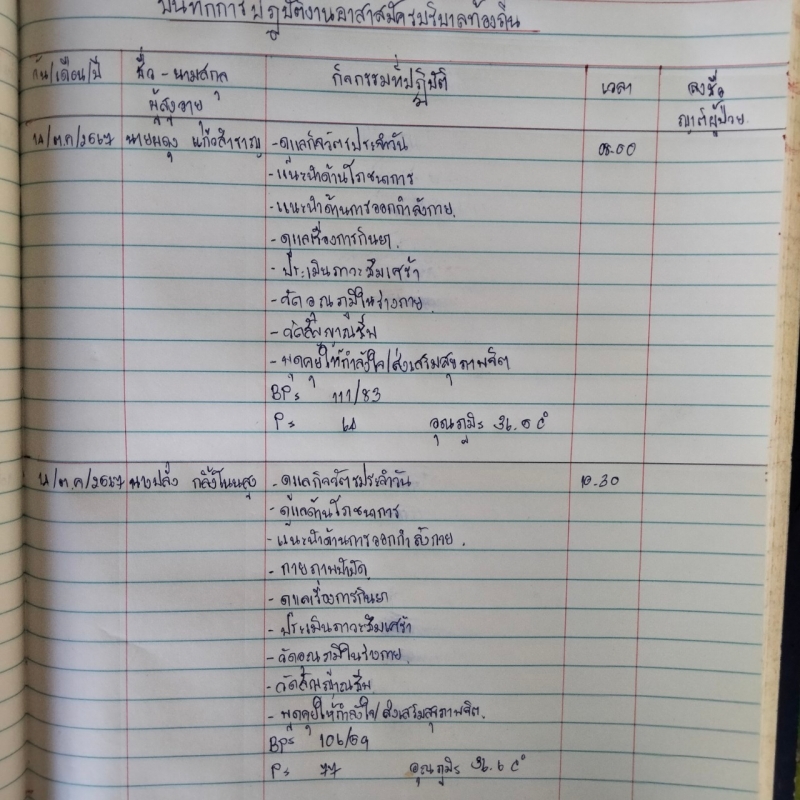 บันทึกการปฏิบัติงานอาสาสมัครบริบาลท้องถิ่น
วัน/เดือน/ปี ชื่อ - นามสกุล กิจกรรมที่ปฏิบัติ เวลา ลงชื่อ
ผู้สูงอายุ ญาติผู้ป่วย
/ต.ค/2567 นายผดุง แก้วสำราญ - ดูแลกิจวัตรประจำวัน 08.00
- แนะนำด้านโภชนาการ
- แนะนำด้านการออกกำลังกาย.
- ดูแลเรื่องการกินยา.
- ประเมินภาวะซึมเศร้า
- วัดอุณภูมิในร่างกาย.
- วัดสัญญาณชีพ
- พูดคุยให้กำลังใจ/ส่งเสริมสุขภาพจิต
BP= 111/83
P= อุณภูมิ= 36.6 C°
/ต.ค/2567 นางปลั่ง - ดูแลกิจวัตรประจำวัน 10.30
- ดูแลด้านโภชนาการ
- แนะนำด้านการออกกำลังกาย.
- กายภาพบำบัด
- ดูแลเรื่องการกินยา
- ประเมินภาวะซึมเศร้า
- วัดอุณภูมิในร่างกาย.
- วัดสัญญาณชีพ
- พูดคุยให้กำลังใจ/ส่งเสริมสุขภาพจิต.
BP= 106/69
P= 77 อุณภูมิ= 36.6 C°